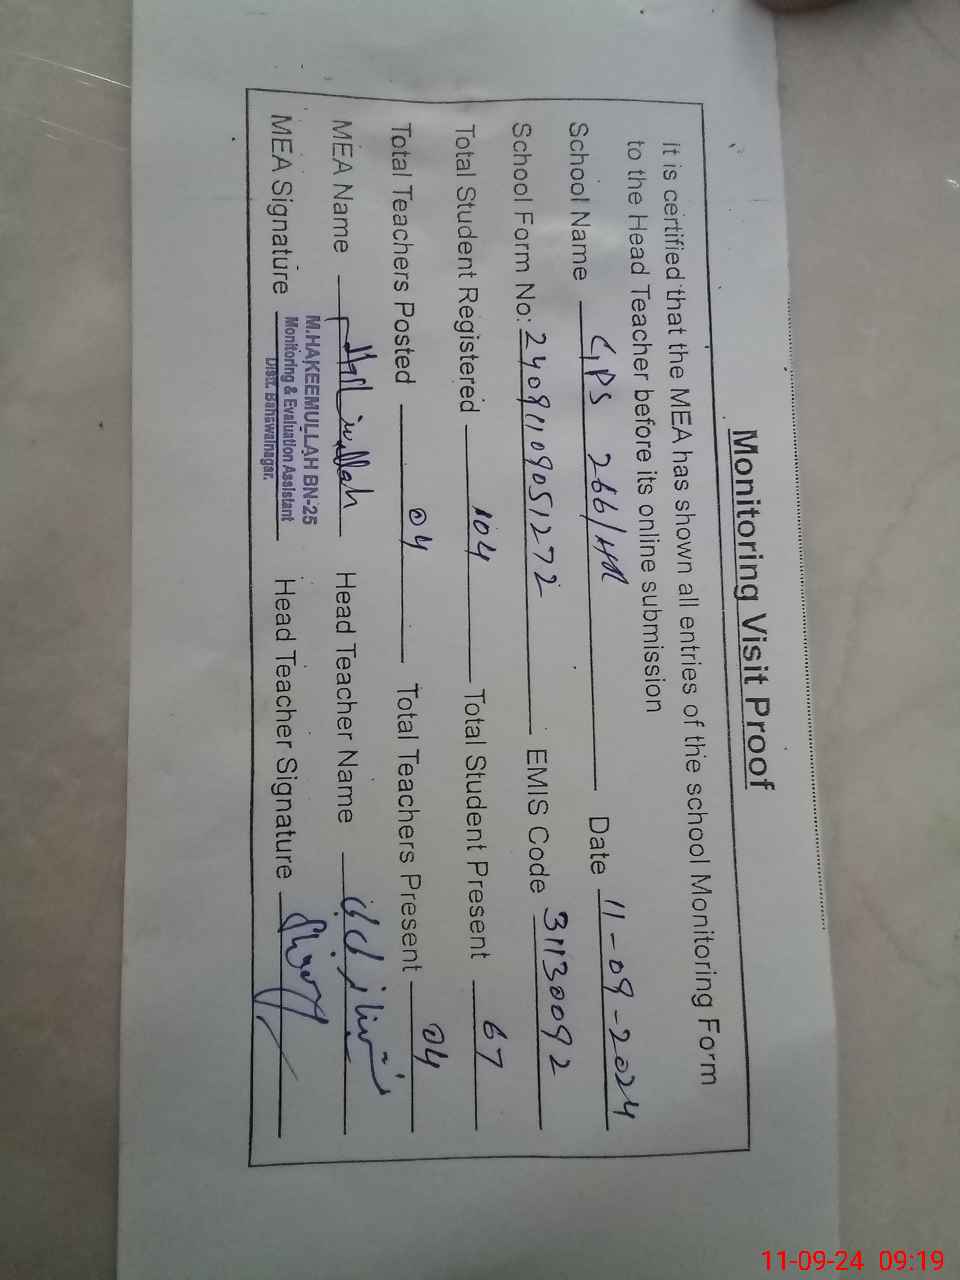 Monitoring Visit Proof
It is certified that the MEA has shown all entries of the school Monitoring Form
to the Head Teacher before its online submission
School Name GPS 266/HR Date 11-09-2024
School Form No: 24091109051272 EMIS Code 31130092
Total Student Registered 104 Total Student Present 67
Total Teachers Posted 04 Total Teachers Present 04
MEA Name Head Teacher Name
M.HAKEEMULLAH BN-25
MEA Signature Head Teacher Signature
Monitoring & Evaluation Assistant
Distt. Bahawalnagar.
11-09-24 09:19